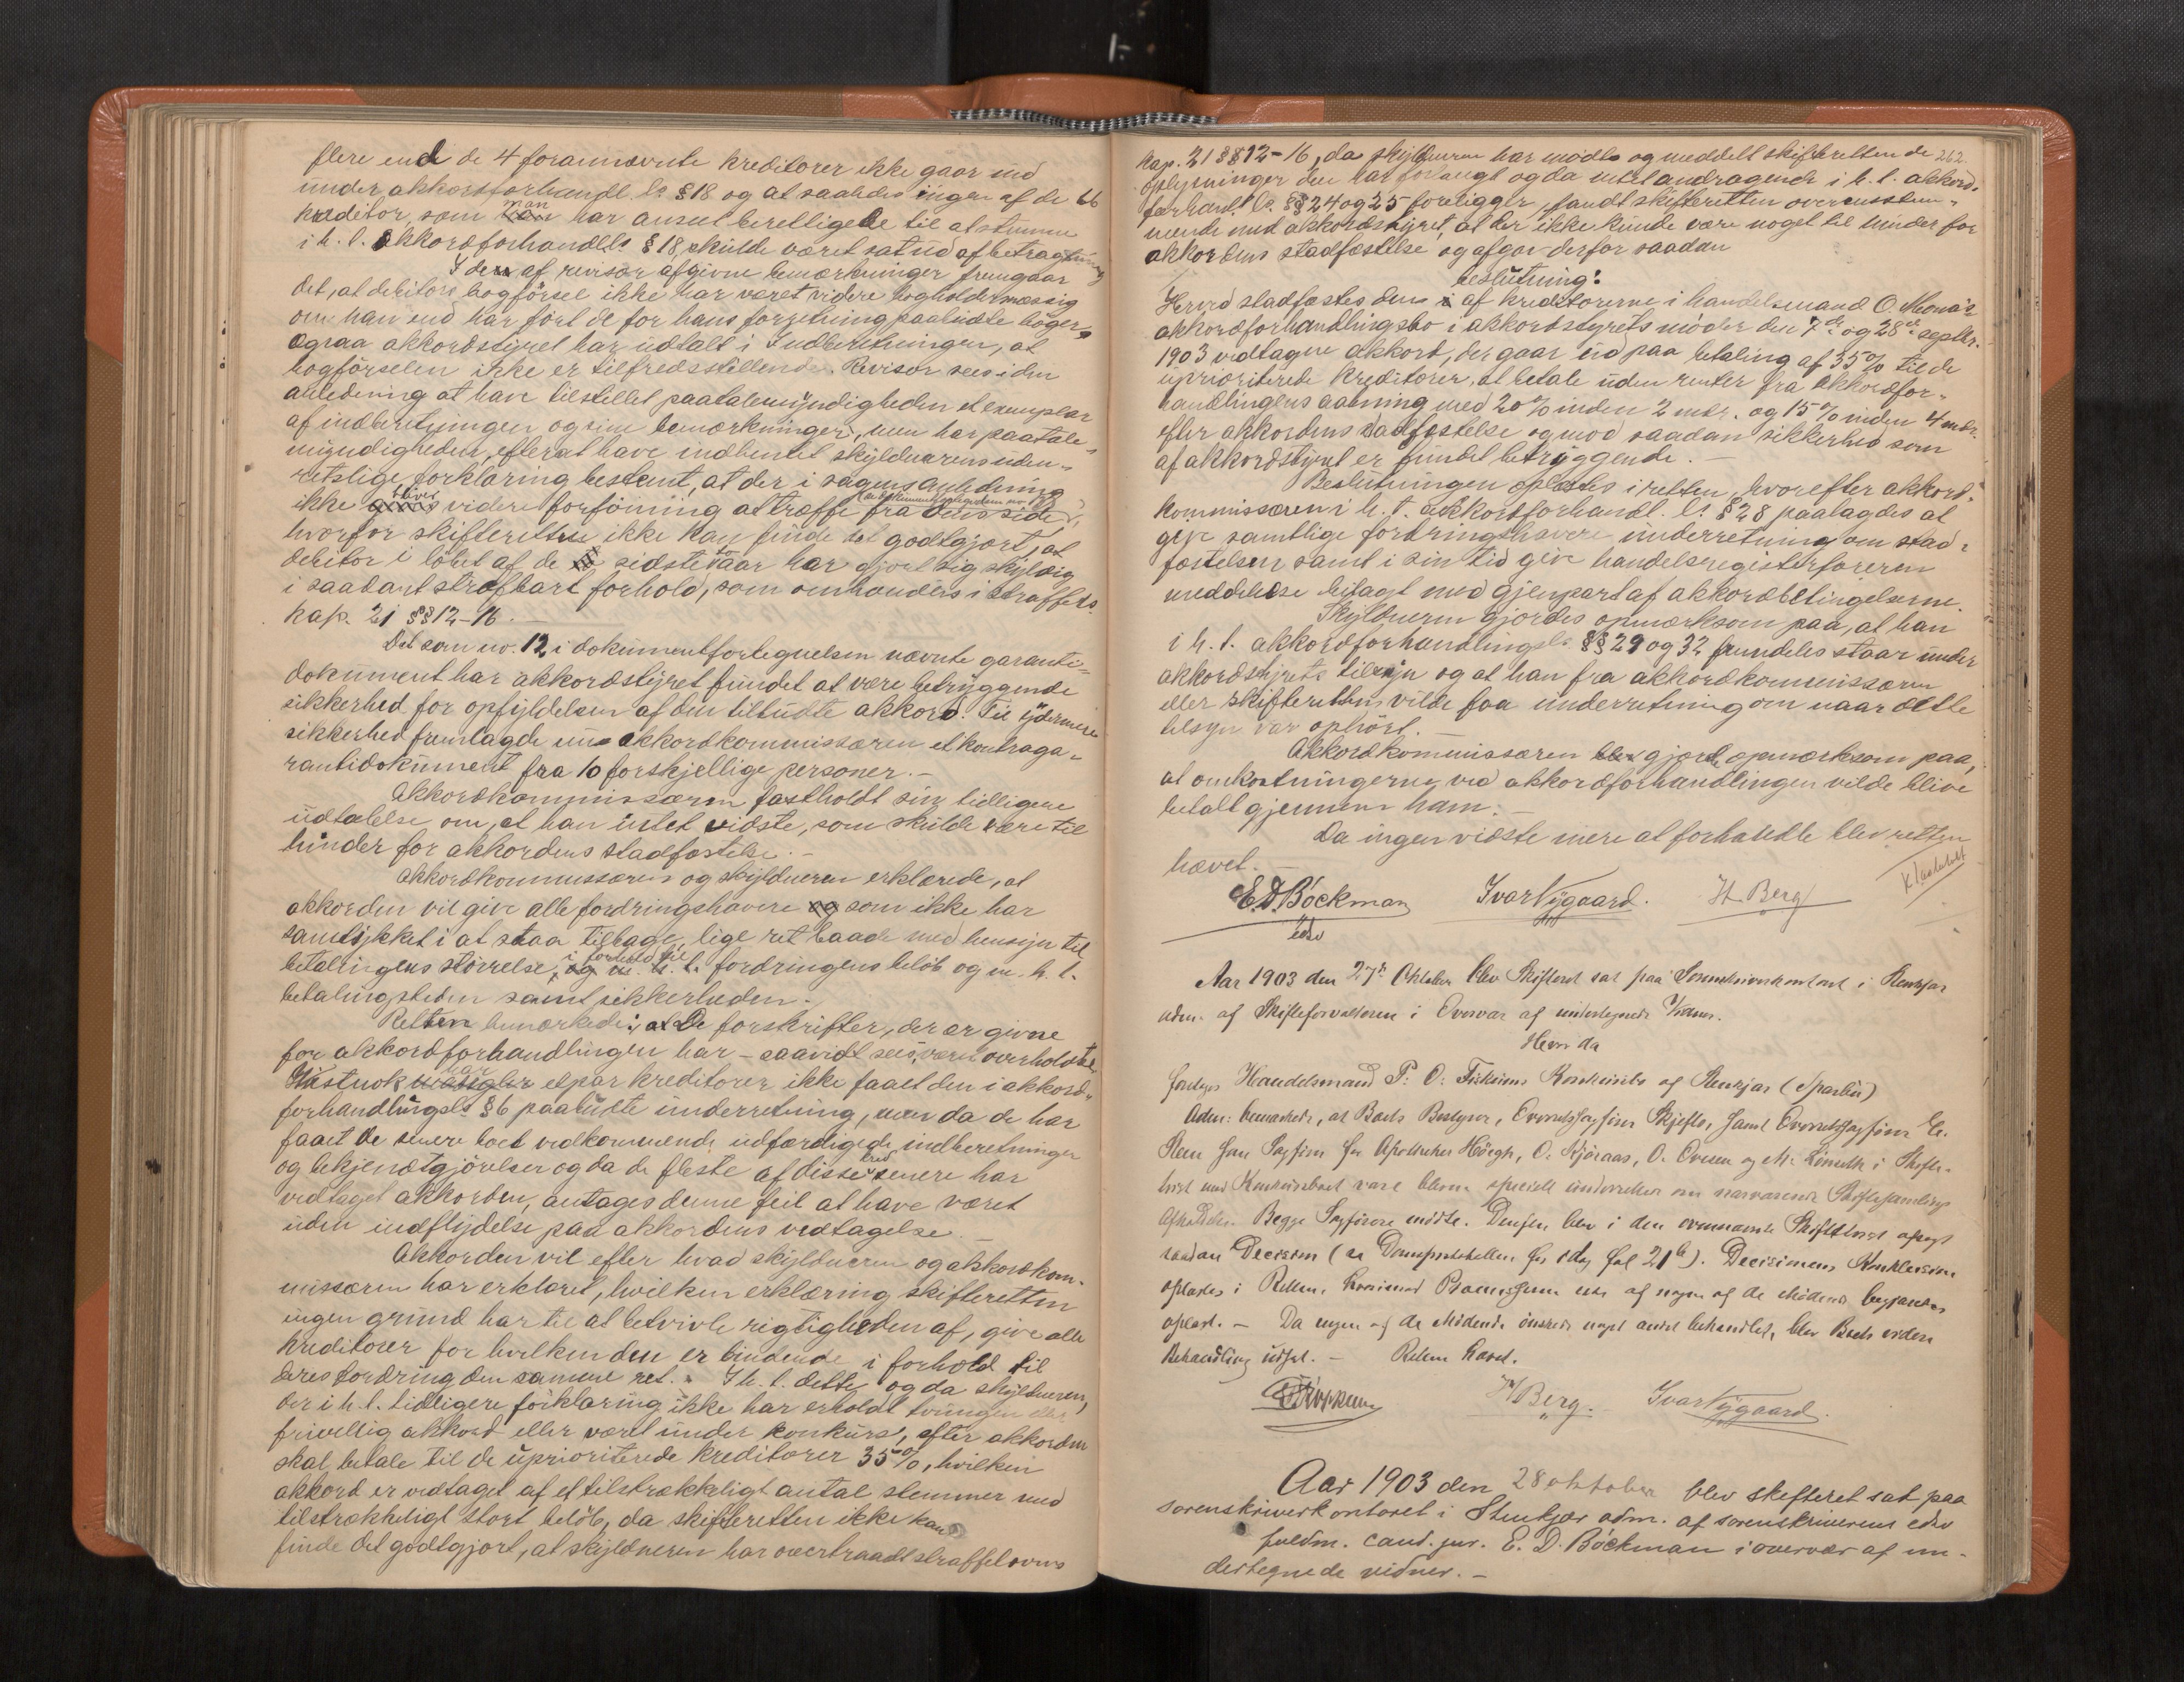 flere end de 4 forannævnte kreditorer ikke gaar ind
under akkordforhandl. ls § 18 og at saaledes ingen af de 66
kreditor, som man har anseet berettigede til at stemme
i h. t. akkordforhandlls § 18, skulde været sat ud af betragtning
I den af revisor afgivne bemærkninger fremgaar
det, at debitors bogførsel ikke har været videre bogholdermæssig
om han end har ført de for hans forretning paabudte bøger
Ogsaa akkordstyret har udtalt i Indberetningen, at
bogførselen ikke er tilfredsstillende. Revisor sees i den
anledning at have tilstillet paatalemyndigheden et exemplar
af indberetningen og sine bemærkninger, men har paatale-
myndigheden, efterat have indhentet skyldnerens uden-
retslige forklaring bestemt, at der i sagens anledning
ikke bliver videre forføining at træffe fra dens side,
hvorfor skifteretten ikke kan finde det godtgjort, at
debitor i løbet af de sidste aar har gjort sig skyldig
i saadant strafbart forhold, som omhandles i straffels
kap. 21 §§ 12-16.
Det som no. 12 i dokumentfortegnelsen nævnte garanti-
dokument har akkordstyret fundet at være betryggende
sikkerhed for opfyldelsen af den tilbudte akkord. Til ydermere
sikkerhed fremlagde akkordkommissæren et kontraga-
rantidokument fra 10 forskjellige personer.-
Akkordkommissæren fastholdt sin tidligere
udtalelse om, at han intet vidste, som skulde være til
hinder for akkordens stadfæstelse.-
Akkordkommissæren og skyldneren erklærede, at
akkorden vil give alle fordringshavere og som ikke har
samtykket i at staa tilbage, lige ret baade med hensyn til
betalingens størrelse, i forhold til fordringens beløb og m. h. t.
betalingstiden samt sikkerheden.-
Retten bemærkede: at De forskrifter, der er givne
for akkordforhandlingen har - saavidt sees været overholdte
Vistnok har et par kreditorer ikke faaet den i akkord-
forhandlingsls § 6 paabudte underretning, men da de har
faaet de senere boet vedkommende udfærdigede indberetninger
og bekjendtgjørelser og da de fleste af disse kred. senere har
vedtaget akkorden, antages denne feil at have været
uden indflydelse paa akkordens vedtagelse.-
Akkorden vil efter hvad skyldneren og akkordkom-
missæren har erklæret, hvilken erklæring skifteretten
ingen grund har til at betvivle rigtigheden af, give alle
kreditorer for hvilken den er bindende i forhold til
deres fordring den samme ret. I h. t. dette og da skyldneren,
der i h. t. tidligere forklaring ikke har erholdt tvungen eller
frivillig akkord eller været under konkurs, efter akkorden
skal betale til de uprioriterede kreditorer 35%, hvilken
akkord er vedtaget af et tilstrækkeligt antal stemmer med
tilstrækkeligt stort beløb, da skifteretten ikke kan
finde det godtgjort, at skyldneren har overtraadt straffelovens
262.
kap. 21 §§ 12-16, da skyldneren har mødt og meddelt skifteretten de
oplysninger den har forlangt og da intet andragende i h. t. akkord-
forhandl. ls. §§ 24 og 25 foreligger, fandt skifteretten overensstem-
mende med akkordstyret, at der ikke kunde være noget til hinder for
akkordens stadfæstelse og afgav derfor saadan
beslutning:
Herved stadfæstes den af kreditorerne i handelsmand O. Mona's
akkordforhandlingsbo i akkordstyrets møder den 7de og 28de septbr.
1903 vedtagne akkord, der gaar ud paa betaling af 35% til de
uprioriterede kreditorer, at betale uden renter fra akkordfor-
handlingens aabning med 20% inden 2 mdr. og 15% inden 4 mdr.
efter akkordens stadfæstelse og mod saadan sikkerhed som
af akkordstyret er fundet betryggende.-
Beslutningen oplæstes i retten, hvorefter akkord-
kommissæren i h. t. akkordforhandl. ls § 28 paalagdes at
give samtlige fordringshavere underretning om stad-
fæstelsen samt i sin tid give handelsregisterføreren
meddelelse bilagt med gjenpart af akkordbetingelserne.
Skyldneren gjordes opmærksom paa, at han
i h. t. akkordforhandlingsls §§ 29 og 32 fremdeles staar under
akkordstyrets tilsyn og at han fra akkordkommissæren
eller skifteretten vilde faa underretning om naar dette
tilsyn var ophørt.-
Akkordkommissæren gjordes opmærksom paa,
at omkostningerne ved akkordforhandlingen vilde blive
betalt gjennem ham.-
Da ingen vidste mere at forhandle blev retten
hævet.-
E. D. Bøckman Ivar Nygaard. H. Berg
edsv
Aar 1903 den 27de Oktober blev Skifteret sat paa Sorenskriverkontoret i Stenkjær
adm. af Skifteforvalteren i Overvær af undertegnede Vidner.
Hvor da
foretoges Handelsmand P. O. Konkursbo af Stenkjær (Sparbu)
Adm. bemærkede, at Boets Bestyrer, Overretssagfører Skjefte, samt Overretssagfører
Stene som Sagfører for Apotheker Høegh, O. Kjøraas, O. Ovesen og M. i Skifte-
tvist med Konkursboet vare blevne specielt underrettet om nærværende Skiftesamlings
Afholdelse. Begge Sagførere mødte. Derefter blev i den ovennævnte Skiftetvist afsagt
saadan Decision (se Domsprotokollen for idag fol 21b). Decisionens Konklusion
oplæstes i Retten, hvorimod Præmisserne ikke af nogen af de Mødende begjæredes
oplæst. - Da ingen af de Mødende ønskede noget andet behandlet, blev Boets videre
Behandling udsat. - Retten hævet.
H Berg. Ivar Nygaard.
Aar 1903 den 28 oktober blev skifteret sat paa
sorenskriverkontoret i Stenkjær adm. af sorenskriverens edsv
fuldm. cand. jur. E. D. Bøckman i overvær af un-
dertegnede vidner.-